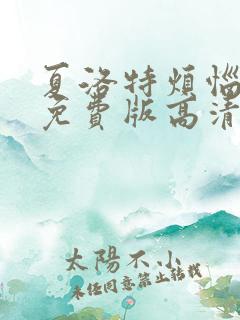 夏洛特煩惱
免費版高清
太陽不小
未经同意禁止转载